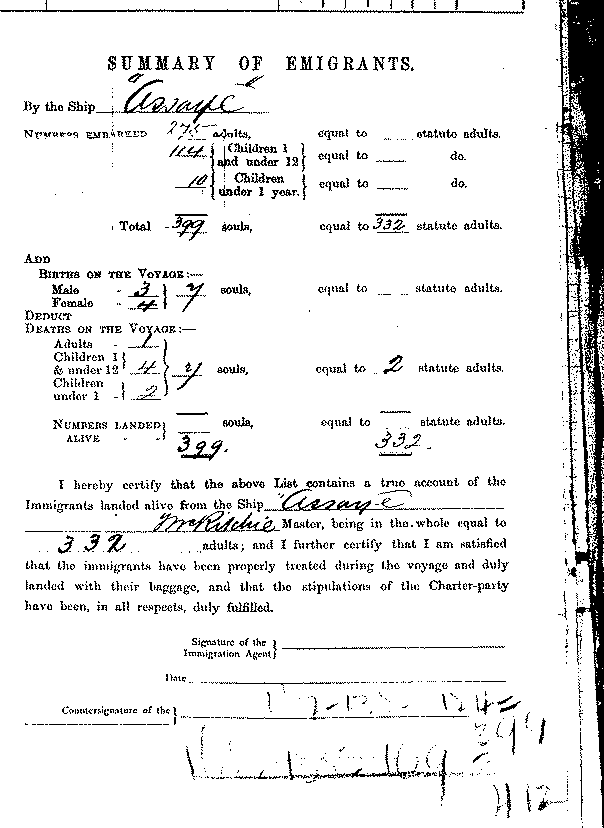 SUMMARY OF EMIGRANTS.
By the Ship "Assaye"
NUMBERS EMBARKED 275 adults, equal to statute adults.
114 { Children 1 and under 12 } equal to do.
10 { Children under 1 year. } equal to do.
Total - 399 souls, equal to 332 statute adults.
ADD
BIRTHS ON THE VOYAGE:—
Male - 3 } 7 souls, equal to statute adults.
Female - 4
DEDUCT
DEATHS ON THE VOYAGE:—
Adults - 1
Children 1 & under 12 } 4 } 7 souls, equal to 2 statute adults.
Children under 1 - } 2
NUMBERS LANDED ALIVE - - } 399. souls, equal to 332. statute adults.
I hereby certify that the above List contains a true account of the
Immigrants landed alive from the Ship "Assaye"
McRitchie Master, being in the whole equal to
332 adults; and I further certify that I am satisfied
that the immigrants have been properly treated during the voyage and duly
landed with their baggage, and that the stipulations of the Charter-party
have been, in all respects, duly fulfilled.
Signature of the Immigration Agent }
Date
Countersignature of the }
399